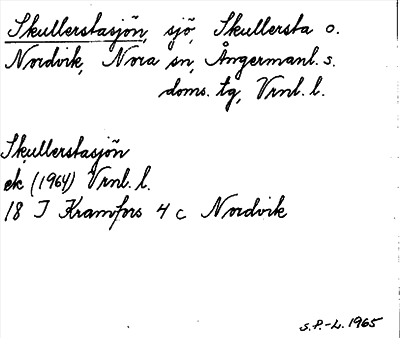 Skullerstasjön, sjö, Skullersta o.
Nordvik, Nora sn, Ångermanl. s.
doms. tg, Vrnl. l.
Skullerstasjön
ek (1964) Vrnl. l.
18 I Kramfors 4 c Nordvik
S.P.-L. 1965